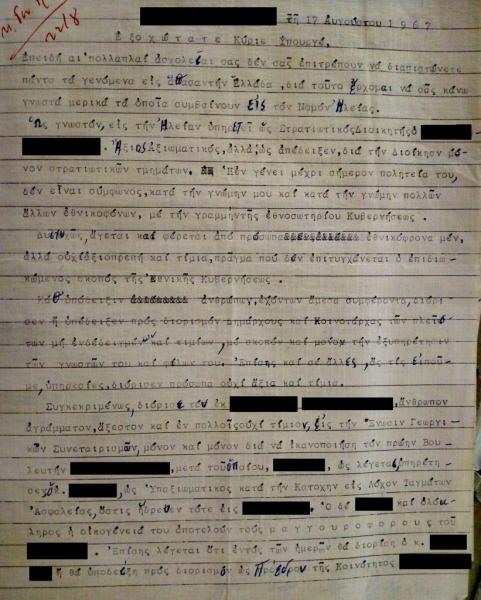 22/8
τῇ 17 Αὐγούστου 1967
Ἐξοχώτατε Κύριε Ὑπουργέ,
Ἐπειδή αἱ πολλαπλαί ἀσχολεῖαι σας δέν σᾶς ἐπιτρέπουν νά διαπιστώνετε
πάντα τά γενόμενα εἰς ἅπασαντήν Ἑλλάδα ,διά τοῦτο ἔρχομαι νά σᾶς κάνω
γνωστά μερικά τά ὁποῖα συμβαίνουν εἰς τόν Νομόν Ἠλείας.
Ὡς γνωστόν,εἰς τήν Ἠλείαν ὑπηρετεῖ ὡς ΣτρατιωτικόςΔιοικητήςὁ
. ἌξιοςἈξιωματικός,ἀλλά,ὡς ἀπέδειξεν,διά τήν Διοίκησιν μό-
νον στρατιωτικῶν τμημάτων. Ἡ ἐν γένει μέχρι σήμερον πολητεία του,
δέν εἶναι σύμφωνος,κατά τήν γνώμην μου καί κατά τήν γνώμην πολλῶν
ἄλλων ἐθνικοφόνων, μέ τήν γραμμήντῆς ἐθνοσωτηρίου Κυβερνήσεως .
Δυστυχῶς,ἄγεται καί φέρεται ἀπό πρόσωπα ἐθνικόφρονα μέν,
ἀλλά οὐχίἀξιοπρεπῆ καί τίμια,πρᾶγμα πού δέν ἐπιτυγχάνεται ὁ ἐπιδιω-
κώμενος σκοπός τῆς Ἐθνικῆς Κυβερνήσεως .
Καθ ὑπόδειξιν ἀνθρώπων,ἐχόντων ἄμεσα συμφέροντα,διόρι-
σεν ἤ ὑπέδειξεν πρός διορισμόν Δημάρχους καί Κοινοτάρχας τῶν πλείσ-
των μή ἐνδεδειγμένων καί τιμίων ,μέ σκοπόν καί μόνον τήν ἐξυπηρέτησιν
τῶν γνωστῶν του καί φίλων του. Ἐπίσης καί σέ ἄλλες,ἄς τίς εἰποῦ-
με,ὑπηρεσίες,διόρισεν πρόσωπα οὐχί ἄξια καί τίμια.
Συγκεκριμένως,διόρισε τόν ἐκ ,ἄνθρωπον
ἀγράμματον,ἄξεστον καί ἐν πολλοῖςοὐχί τίμιον,εἰς τήν Ἕνωσιν Γεωργι-
κῶν Συνεταιρισμῶν,μόνον καί μόνον διά νά ἱκανοποίηση τόν πρώην Βου-
λευτήν ,μετά τοῦὁποίου, , ὡς λέγεται,ὑπηρέτη-
σεν ,ὡς Ὑπαξιωματικος κατά τήν Κατοχήν εἰς Λόχον Ταγμάτων
Ἀσφαλείας,ὅστις ἥδρευεν τότε εἰς . Ὁ δέ καί ὁλόκ-
ληρος ἡ οἰκογένειά του ἀποτελοῦν τούς μαγγουροφορους τοῦ
. Ἐπίσης λέγεται ὅτι ἐντός τῶν ἡμερῶν θά διορίση ὁ κ.
ἤ θά ὑποδείξη πρός διορισμόν ὡς Πρόεδρον τῆς Κοινότητος